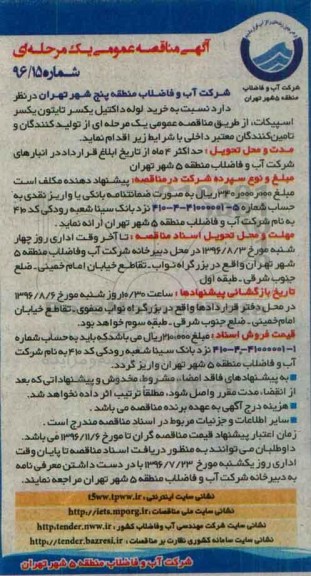 آگهی مناقصه عمومی یک مرحله‌ای
شماره ۹۶/۱۵
شرکت آب و فاضلاب
منطقه ۵ شهر تهران
شرکت آب و فاضلاب منطقه پنج شهر تهران در نظر
دارد نسبت به خرید لوله داکتیل یکسر تایتون یکسر
اسپیگات، از طریق مناقصه عمومی یک مرحله ای از تولید کنندگان و
تامین‌کنندگان معتبر داخلی با شرایط زیر اقدام نماید.
مدت و محل تحویل : حداکثر ۴ ماه از تاریخ ابلاغ قرارداد در انبارهای
شرکت آب و فاضلاب منطقه ۵ شهر تهران
مبلغ و نوع سپرده شرکت در مناقصه: پیشنهاد دهنده مکلف است
ریال به صورت ضمانتنامه بانکی یا واریز نقدی به
حساب شماره نزد بانک سینا شعبه رودکی کد ۴۱۰
به نام شرکت آب و فاضلاب منطقه ۵ شهر تهران ارائه نماید.
مهلت و محل تحویل اسناد مناقصه : تا آخر وقت اداری روز چهار
شنبه مورخ ۱۳۹۶/۸/۳ در محل دبیرخانه شرکت آب و فاضلاب منطقه ۵
شهر تهران واقع در بزرگراه نواب ـ تقاطع خیابان امام خمینی ـ ضلع
جنوب شرقی ـ طبقه اول
تاریخ بازگشایی پیشنهادها : ساعت ۱۰/۳۰ روز شنبه مورخ ۱۳۹۶/۸/۶
در محل دفتر قراردادها واقع در بزرگراه نواب صفوی ـ تقاطع خیابان
امام خمینی ـ ضلع جنوب شرقی ـ طبقه سوم خواهد بود.
قیمت فروش اسناد : مبلغ ریال می باشد که باید به حساب شماره
نزد بانک سینا شعبه رودکی کد ۴۱۰ به نام شرکت
آب و فاضلاب منطقه ۵ شهر تهران واریز گردد.
به پیشنهادهای فاقد امضا، مشروط، مخدوش و پیشنهاداتی که بعد
از انقضا، مدت مقرر واصل شود، مطلقاً ترتیب اثر داده نخواهد شد.
هزینه درج آگهی به عهده برنده مناقصه می باشد .
سایر اطلاعات و جزئیات مربوط در اسناد مناقصه مندرج است .
زمان اعتبار پیشنهاد قیمت مناقصه گران تا مورخ ۱۳۹۶/۱۱/۶ می باشد.
داوطلبان می توانند به منظور دریافت اسناد مناقصه تا پایان وقت
اداری روز یکشنبه مورخ ۱۳۹۶/۷/۲۳ با در دست داشتن معرفی نامه
به دبیرخانه شرکت آب و فاضلاب منطقه ۵ شهر تهران مراجعه نمایند.
نشانی سایت اینترنتی : t5ww.tpww.ir
نشانی سایت ملی مناقصات : http://iets.mporg.ir
نشانی سایت شرکت مهندسی آب وفاضلاب کشور : http:tender.nww.ir
نشانی سایت سامانه کشوری نظارت بر مناقصات : http://tender.bazresi.ir
شرکت آب و فاضلاب منطقه ۵ شهر تهران